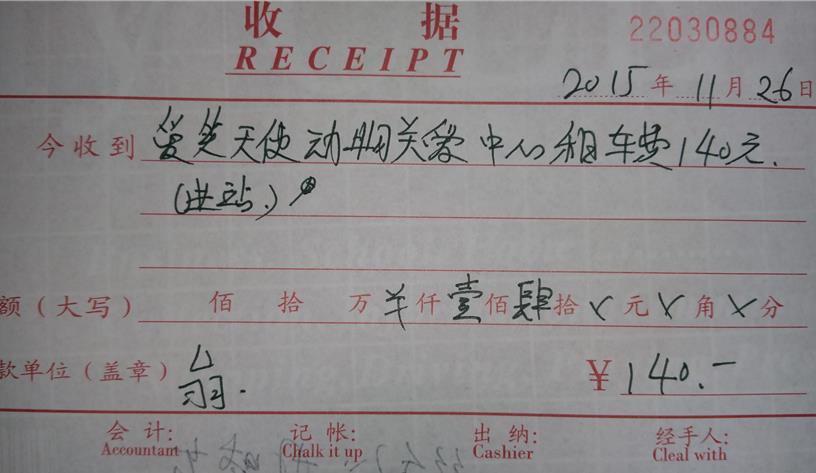 收 据
22030884
RECEIPT
2015年11月26日
今收到 爱笑天使动物关爱中心租车费140元.
(进站.)
额(大写) 佰 拾 万 羊仟壹佰肆拾 元 角 分
款单位(盖章)
¥140.-
会 计: 记 帐: 出 纳: 经手人:
Accountant Chalk it up Cashier Cleal with